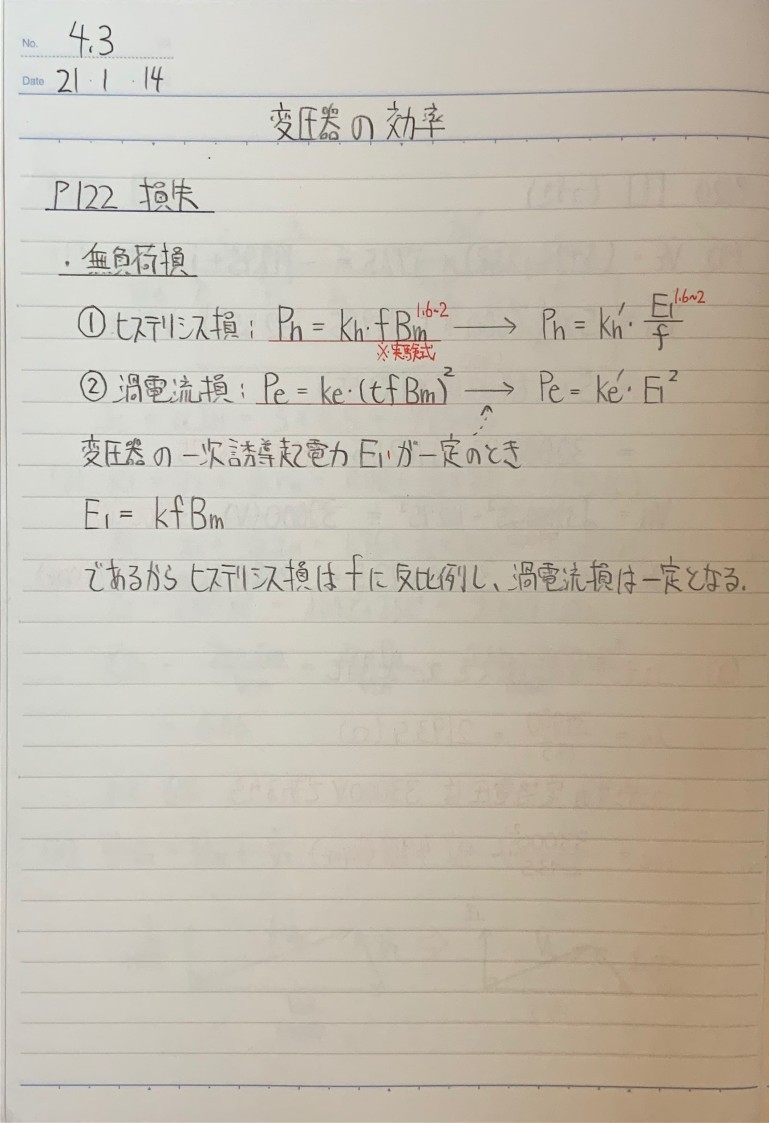 No. 4.3
Date 21・1・14
変圧器の効率
P122 損失
・無負荷損
① ヒステリシス損: Ph = kh・fBm^1.6~2 → Ph = kh'・E1^1.6~2/f
※実験式
② 渦電流損: Pe = ke・(tfBm)^2 → Pe = ke'・E1^2
変圧器の一次誘導起電力E1が一定のとき
E1 = kfBm
であるからヒステリシス損はfに反比例し、渦電流損は一定となる.